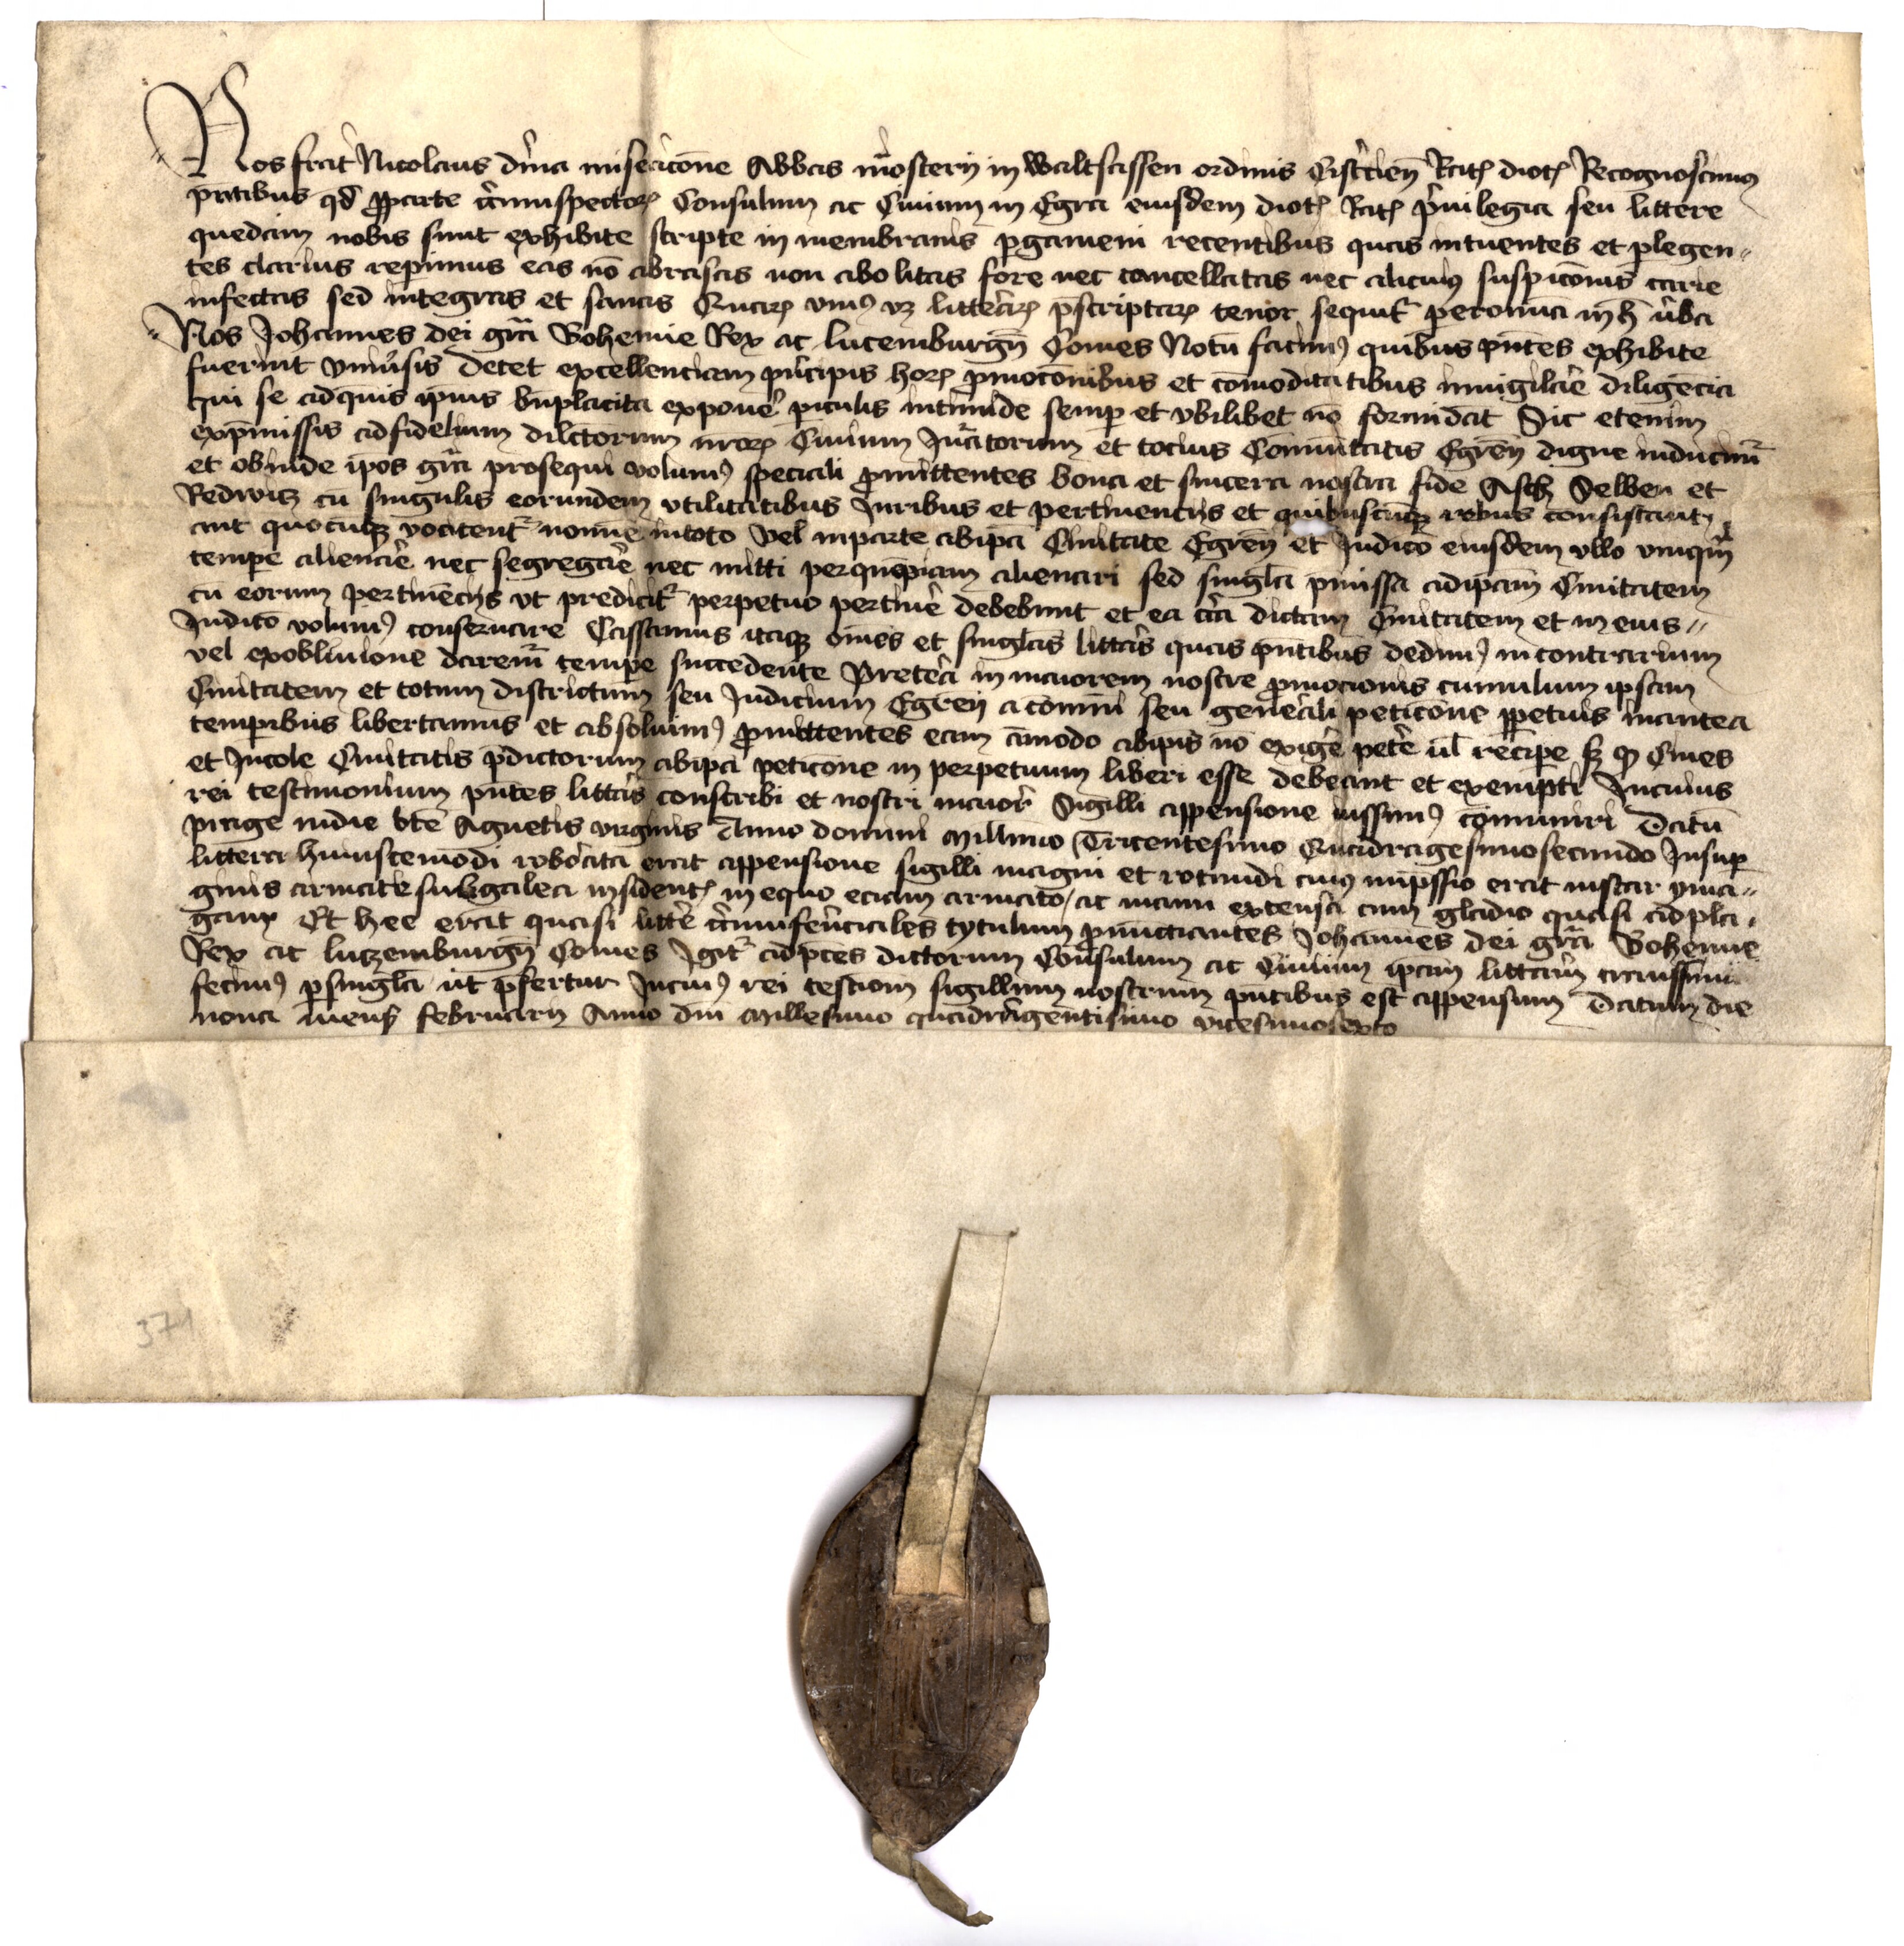 Nos frat̉ Nicolaus dīna miseric̄one Abbas mōsterij in Waltsassen ordinis Cistc̄ieñ Ratꝭ diocꝭ Recognoscimꝰ
pn̄tibus qđ ꝓparte c̄cumspectoꝝ Consulum ac Ciuium in Egra eiusdem diocꝭ Ratꝭ pͥuilegia seu littere
quedam nobis sunt exhibite scripte in membranis ꝑgameni recentibus quas intuentes et ꝑlegen〃
tes clarius reꝑimus eas nō abrasas non abolitas fore nec cancellatas nec alicuiꝰ suspic̄onis carie
infectas sed integras et sanas Quaꝝ vniꝰ vꝫ litteraꝝ p̄scriptaꝝ tenor sequit᷑ ꝑeromnia in h̄ v̉ba
Nos Johannes dei gr̄a Bohemie Rex ac lucemburgñ Comes Notū facimꝰ quibus pn̄tes exhibite
fuerint vniu̓sis Decet excellenciam pͥncipis hoꝝ ꝓmoc̄onibus et cōmoditatibus inuigilar̄e diligēcia
qui se adqͣuis ipīus bn̄placita exponer̄e ꝑiculis intimide semꝑ et vbilibet nō formidat Sic etenim
exp̄missis adfidelium dilctorum nr̄oꝝ Ciuium Jur̄atorum et tocius Com̄unitatis Egreñ digne inducimr᷑
et obinde ip̄os gr̄a prosequi volumꝰ speciali ꝓmittentes bona et sincera nostra fide Asch Selben et
Redwitz cū singulis eorundem vtilitatibus Juribus et pertinencijs et quibuscūqꝫ rebus consistant
aut quocūqꝫ vocitent᷑ nomīe intoto vel inparte abip̄a Ciuitate Egreñ et Judic̄o eiusdem vllo vnuqͣm
tempe alienar̄e nec segregar̄e nec mitti perquēpiam alienari sed singl̄a p̄missa adip̄am Ciuitatem
cū eorum pertinēcijs vt predicit᷑ perpetuo pertiner̄e debebunt et ea cir̄a dictam Ciuitatem et in eius〃
Judic̄o volumꝰ conseruare Cassamus itaqꝫ om̄es et singl̄as litt̄as quas pn̄tibus dedimꝰ incontrarium
vel exobliuione daremꝰ tempe succedente Preter̄a in maiorem nostre ꝓmocionis cumulum ipsam
Ciuitatem et totum districtum seu Judicium Egreñ a com̄uni seu gen̄erali petic̄one ꝑpetuis inantea
tempibus libertamus et absoluimꝰ ꝓmittentes eam āmodo abip̄is nō exiger̄e peter̄e ul̄ recipe sꝫ ꝙ Ciues
et Jncole Ciuitatis p̄dictorum abip̄a petic̄one in perpetuum liberi esse debeant et exempti Jncuius
rei testimonium pn̄tes litt̄as conscribi et nostri maior̄ Sigilli appensione iussimꝰ com̄uniri Datū
prage indie bt̄e Agnetis virginis Anno domini Millīmo Tricentesimo Quadragesimosecundo Jnsuꝑ
littera huiuscemodi robor̄ata erat appensione sigilli magni et rotundi cuiꝰ imp̄ssio erat instar yma〃
ginis armate subgalea insidentꝭ in equo eciam armato / ac manu extensa cum gladio quasi adpla〃
gam Et hee erat quasi litt̄e c̄cumferenciales tytulum ꝓnuncciantes Johannes dei gr̄a Bohemie
Rex ac lutzemburgñ Comes Jgit᷑ adp̄ces dictorum Cōnsulum ac Ciuium ip̄am litt̄am transsūmi
fecimꝰ ꝑsingl̄a ut p̄fertur Jncuiꝰ rei testiom̄ sigillum nostrum pn̄tibus est appensum Datum die
nona mens̄ februarij Anno dn̄i Millesimo quadrīgentisimo vicesimosexto
371